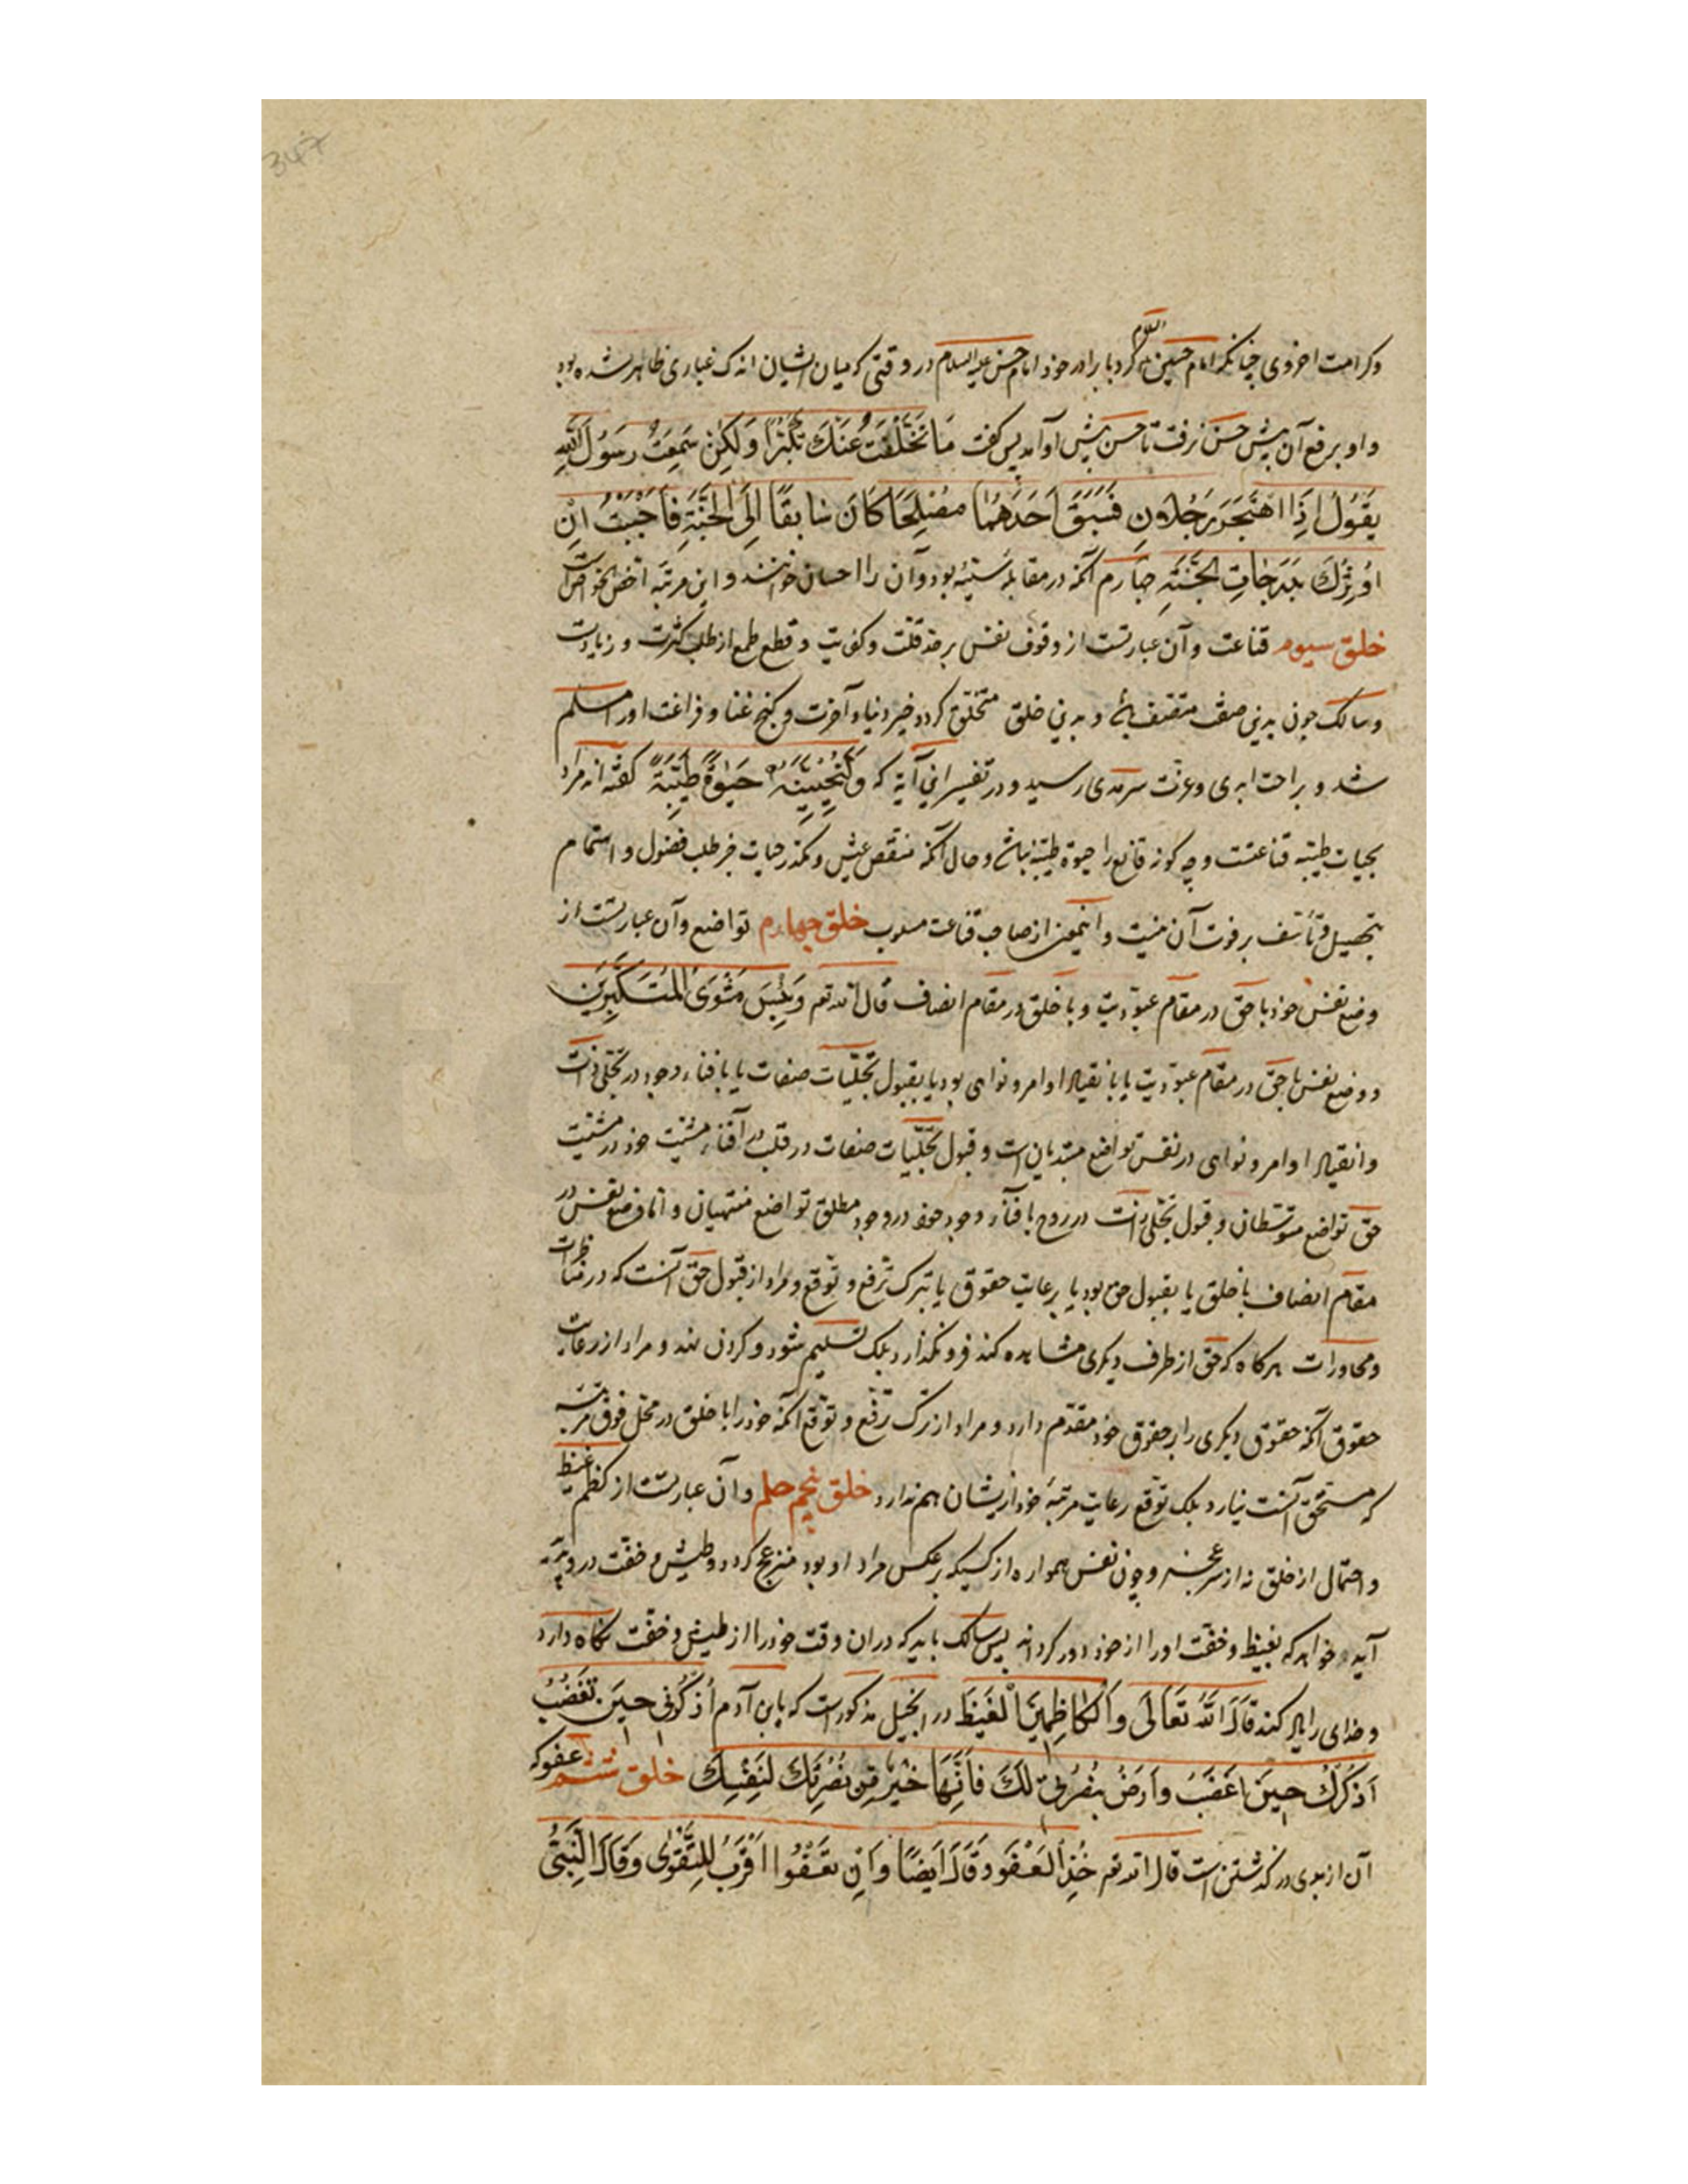 347
وکرامت اخروی چنانکه امام حسین علیه السلام کرد با برادر خود امام حسن علیه السلام در وقتی که میان ایشان اندک غباری ظاهر شده بود
و او برفع آن پیش حسن نرفت تا حسن پیش او آمد پس گفت مَا تَخَلَّفْتُ عَنْكَ تَكَبُّرًا وَلٰكِنْ سَمِعْتُ رَسُولَ اللّٰهِ
يَقُولُ اِذَا اهْتَجَرَ رَجُلَانِ فَسَبَقَ اَحَدَهُمَا مُصْلِحًا كَانَ سَابِقًا اِلَى الْجَنَّةِ فَاَحْبَبْتُ اَنْ
اُوثِرَكَ بِدَرَجَاتِ الْجَنَّةِ چهارم آنکه در مقابله سیئه بود و آن را احسان خوانند و این مرتبه اخص الخواص است
خلق سیوم قناعت و آن عبارتست از وقوف نفس بر حد قلت و کفویت و قطع طمع از طلب کثرت و زیادت
و سالک چون بدین صفت متصف باشد و بدین خلق متخلق گردد خیر دنیا و آخرت و گنج غنا و فراغت او را مسلم
شد و براحت ابدی و عزت سرمدی رسید و در تفسیر این آیة که وَلَنُحْيِيَنَّهُ حَيٰوةً طَيِّبَةً گفته اند مراد
بحیات طیبه قناعتست و چگونه قانع را حیوة طیبه نباشد و حال آنکه منغص عیش و مکدر حیات جز طلب فضول و اهتمام
بتحصیل و تأسف بر فوت آن نیست و اینمعنی از صاحب قناعت مسلوب خلق چهارم تواضع و آن عبارتست از
وضع نفس خود با حق در مقام عبودیت و با خلق در مقام انصاف قال الله تعم وَلَبِئْسَ مَثْوَى الْمُتَكَبِّرِينَ
و وضع نفس با حق در مقام عبودیت یا بانقیاد اوامر و نواهی بود یا بقبول تجلیات صفات یا بافناء وجود در تجلی ذات
و انقیاد اوامر و نواهی در نفس تواضع مبتدیان است و قبول تجلیات صفات در قلب در افناء مشیت خود در مشیت
حق تواضع متوسطان و قبول تجلی ذات در روح بافناء وجود خود در وجود مطلق تواضع منتهیان و اما وضع نفس در
مقام انصاف با خلق یا بقبول حق بود یا برعایت حقوق یا بترک ترفع و توقع و مراد از قبول حق آنست که در مناظرات
و محاورات هرگاه که حق از طرف دیگری مشاهده کند فرو نگذارد بلک تسلیم شود و گردن نهد و مراد از رعایت
حقوق آنکه حقوق دیگری را بر حقوق خود مقدم دارد و مراد از ترک ترفع و توقع آنکه خود را با خلق در محل فوق مرتبه
که مستحق آنست نیارد بلک توقع رعایت مرتبهٔ خود ازیشان هم ندارد خلق پنجم حلم و آن عبارتست از کظم غیظ
و احتمال از خلق نه از سر عجز و چون نفس همواره از کسیکه بر عکس مراد او بود منزعج گردد و طیش و خفت در و پدید
آید و خواهد که بغیظ و خفت او را از خود دور گرداند پس سالک باید که دران وقت خود را از طیش و خفت نگاه دارد
و خدای را یاد کند قَالَ اللّٰهُ تَعَالَى وَالْكَاظِمِينَ الْغَيْظَ در انجیل مذکورست که یا بن آدم اُذْكُرْنِي حِينَ تَغْضَبُ
اَذْكُرْكَ حِينَ اَغْضَبُ وَارْضَ بِنُصْرَتِي لَكَ فَاِنَّهَا خَيْرٌ مِنْ نُصْرَتِكَ لِنَفْسِكَ خلق ششم عفو که
آن از بدی در گذشتن است قال الله تعم خُذِ الْعَفْوَ وَقَالَ اَيْضًا وَاَنْ تَعْفُوا اَقْرَبُ لِلتَّقْوٰى وَقَالَ النَّبِيُّ